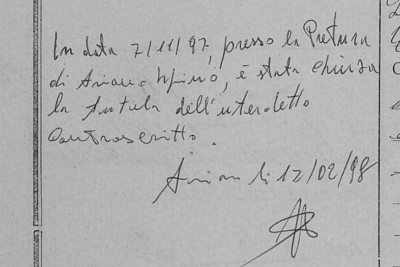 In data 7/11/97, presso la Pretura
di Ariano Irpino, è stata chiusa
la tutela dell'interdetto
controscritto.
Ariano li 12/02/98